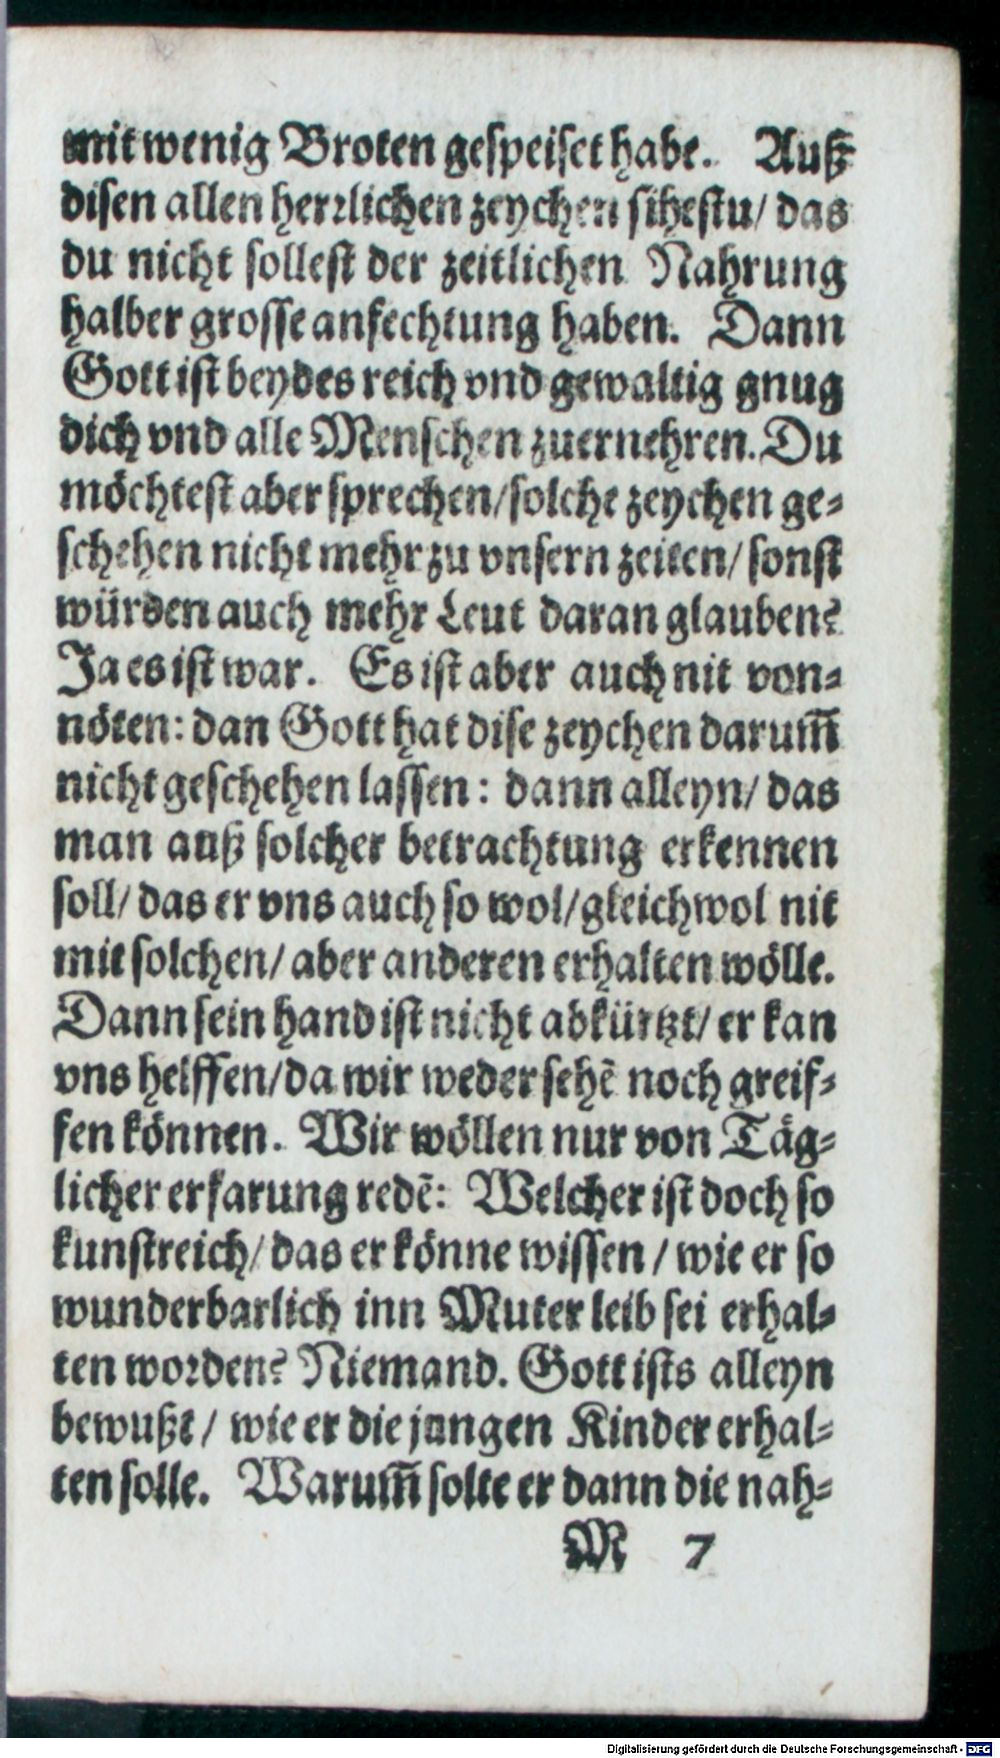 mit wenig Broten gespeiset habe. Auß
disen allen herꝛlichen zeychen sihestu/ das
du nicht sollest der zeitlichen Nahrung
halber grosse anfechtung haben. Dann
Gott ist beydes reich vnd gewaltig gnug
dich vnd alle Menschen zuernehren. Du
möchtest aber sprechen/ solche zeychen ge-
schehen nicht mehr zu vnsern zeiten/ sonst
würden auch mehr Leut daran glauben?
Ja es ist war. Es ist aber auch nit von-
nöten: dan Gott hat dise zeychen darum̃
nicht geschehen lassen: dann alleyn/ das
man auß solcher betrachtung erkennen
soll/ das er vns auch so wol/ gleichwol nit
mit solchen/ aber anderen erhalten wölle.
Dann sein hand ist nicht abkürtzt/ er kan
vns helffen/ da wir weder sehẽ noch greif-
fen können. Wir wöllen nur von Täg-
licher erfarung redẽ: Welcher ist doch so
kunstreich/ das er könne wissen/ wie er so
wunderbarlich inn Muter leib sei erhal-
ten woꝛden? Niemand. Gott ists alleyn
bewußt/ wie er die jungen Kinder erhal-
ten solle. Warum̃ solte er dann die nah-
M 7
Digitalisierung gefördert durch die Deutsche Forschungsgemeinschaft - DFG